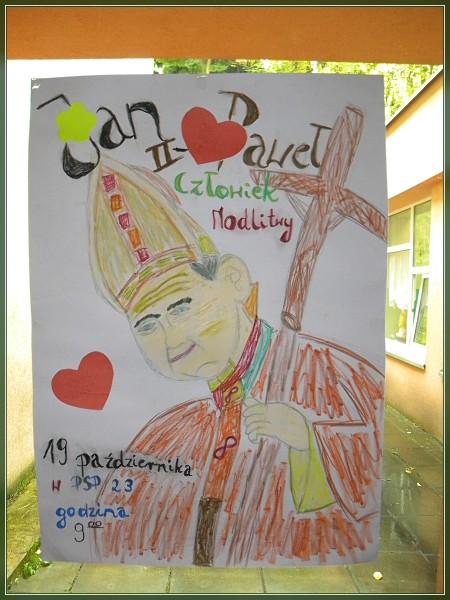 Jan
II - Paweł
Człowiek
Modlitwy
19 października
w PSP 23
godzina
9 00